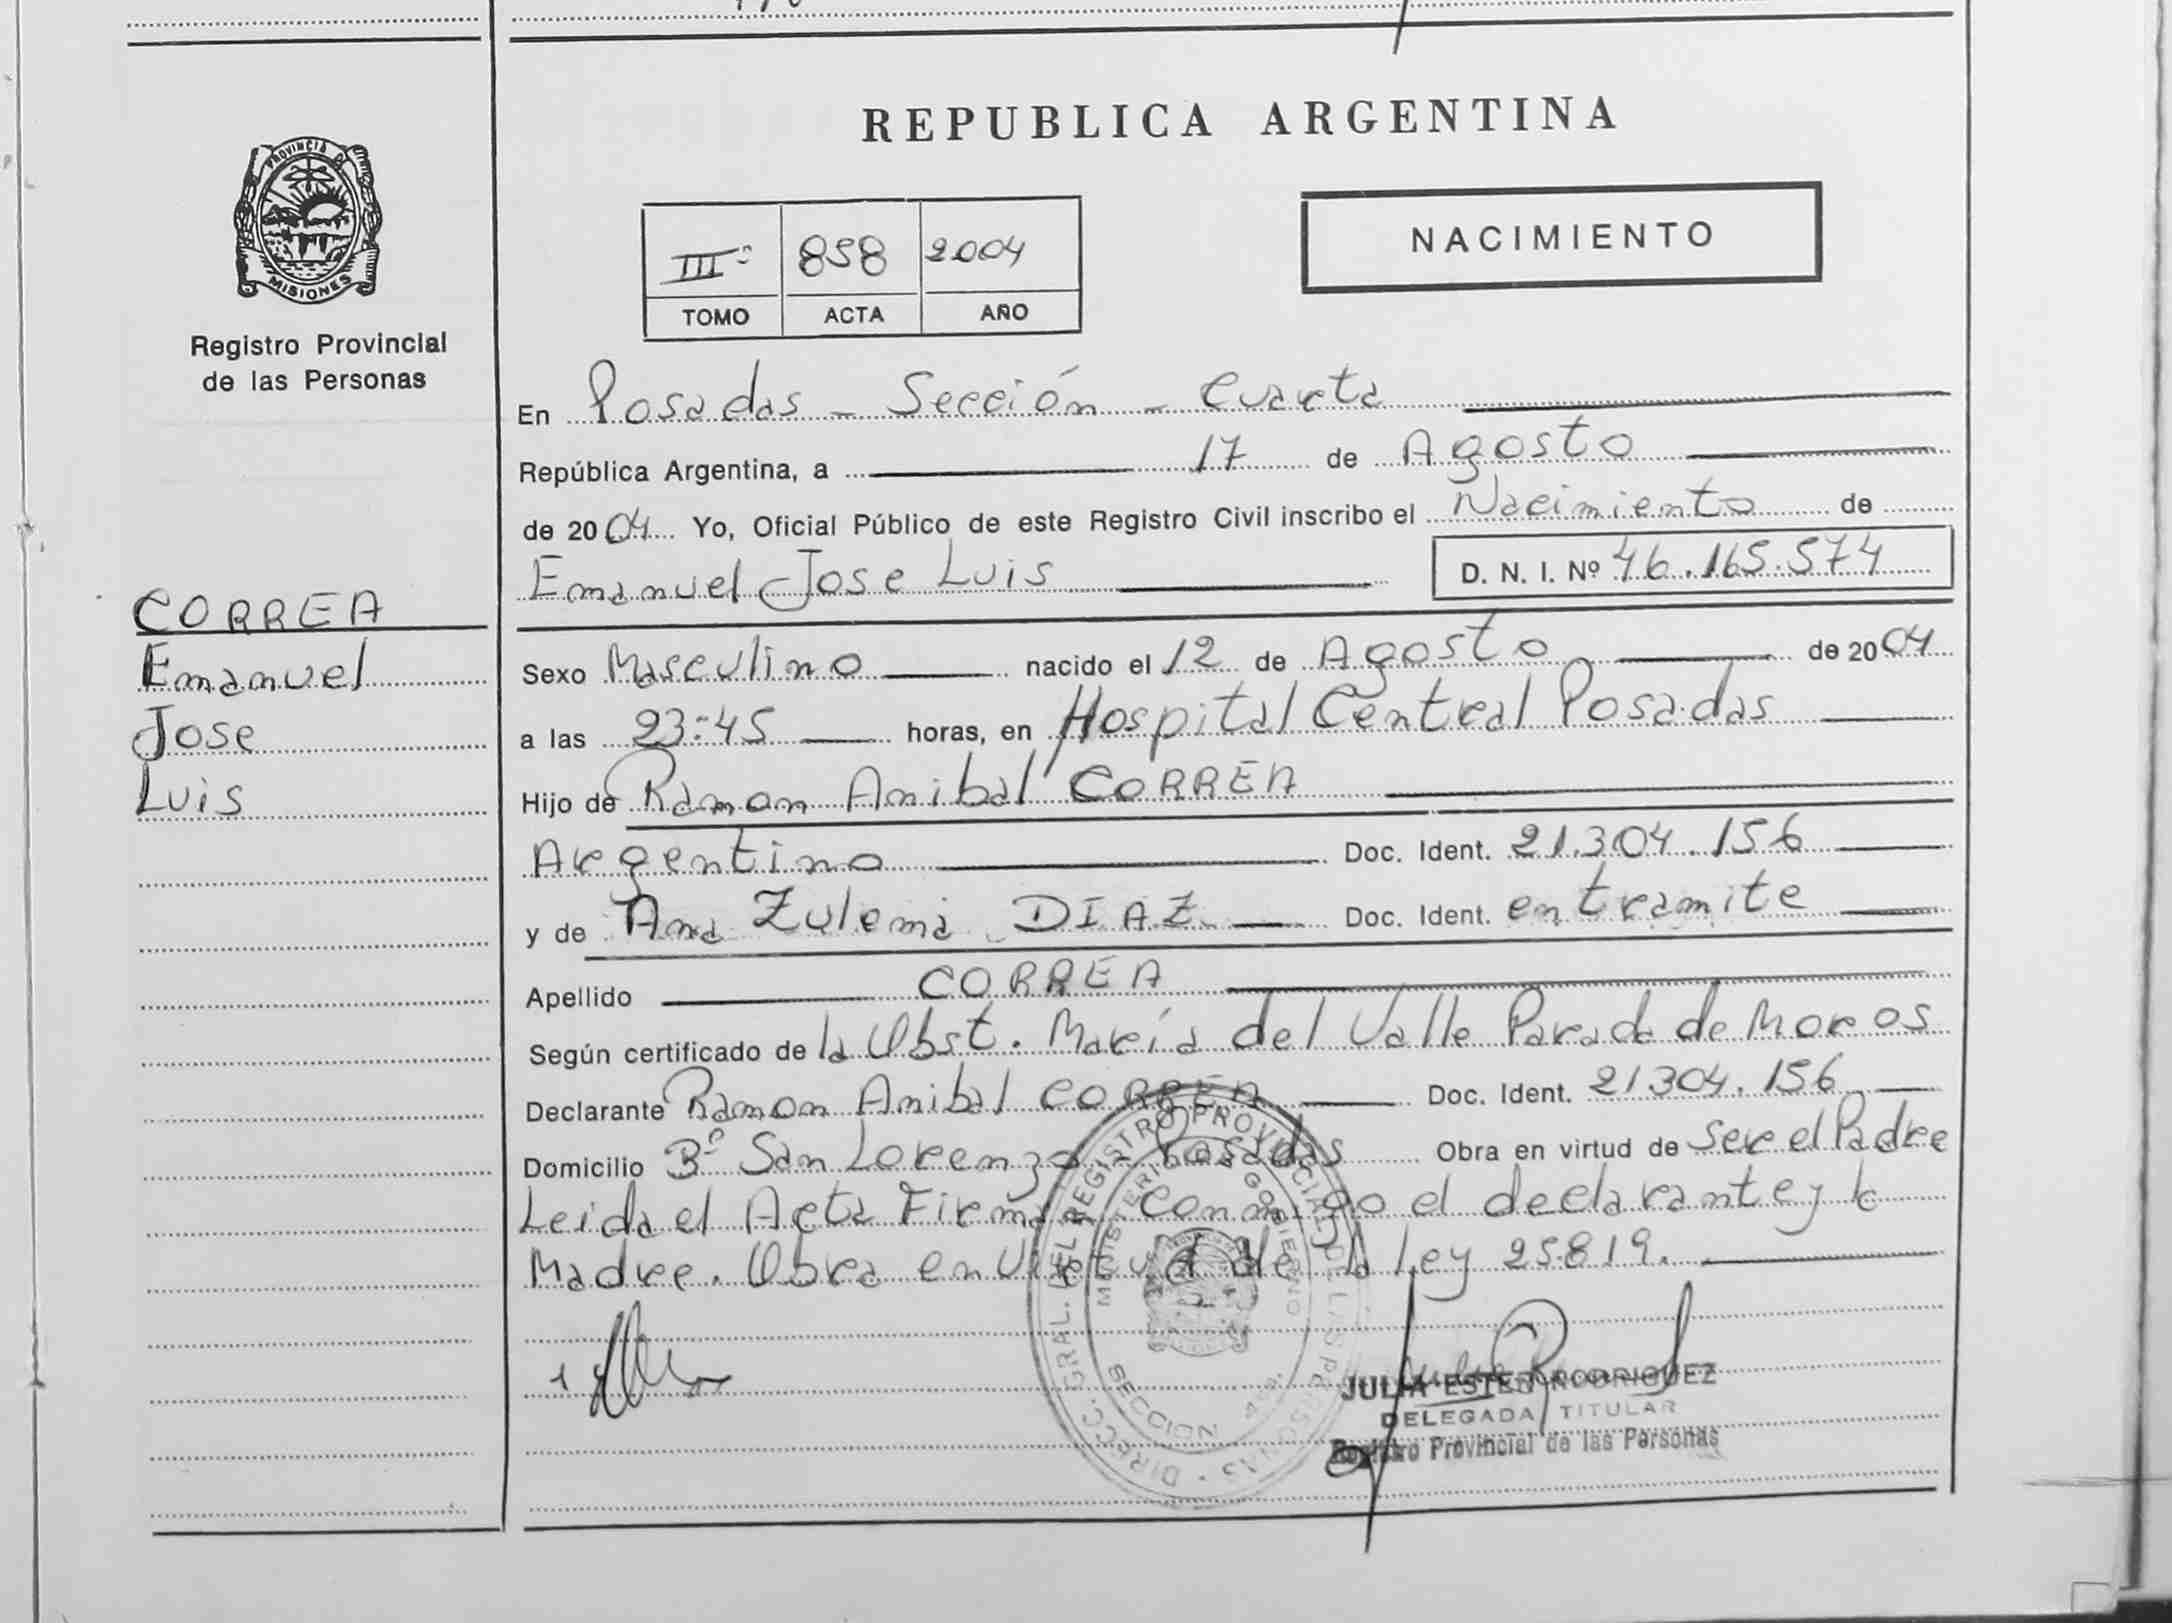 PROVINCIA DE
MISIONES
Registro Provincial
de las Personas
CORREA
Emanuel
Jose
Luis
REPUBLICA ARGENTINA
III 858 2004
TOMO ACTA AÑO
NACIMIENTO
En Posadas - Sección - Cuarta
República Argentina, a 17 de Agosto
de 2004 Yo, Oficial Público de este Registro Civil inscribo el Nacimiento de
Emanuel Jose Luis D. N. I. Nº 46.165.574
Sexo Masculino nacido el 12 de Agosto de 2004
a las 23:45 horas, en Hospital Central Posadas
Hijo de Ramon Anibal CORREA
Argentino Doc. Ident. 21.304.156
y de Ana Zulema DIAZ Doc. Ident. en tramite
Apellido CORREA
Según certificado de la Obst. María del Valle Parada de Moros
Declarante Ramon Anibal CORREA Doc. Ident. 21304.156
Domicilio Bº San Lorenzo - Posadas Obra en virtud de ser el Padre
Leida el Acta Firma conmigo el declarante y la
Madre. Obra en Virtud de la Ley 25819.
DIRECC. GRAL. DEL REGISTRO PROVINCIAL DE LAS PERSONAS
MINISTERIO DE GOBIERNO
SECCION
JULIA ESTER RODRIGUEZ
DELEGADA TITULAR
Registro Provincial de las Personas